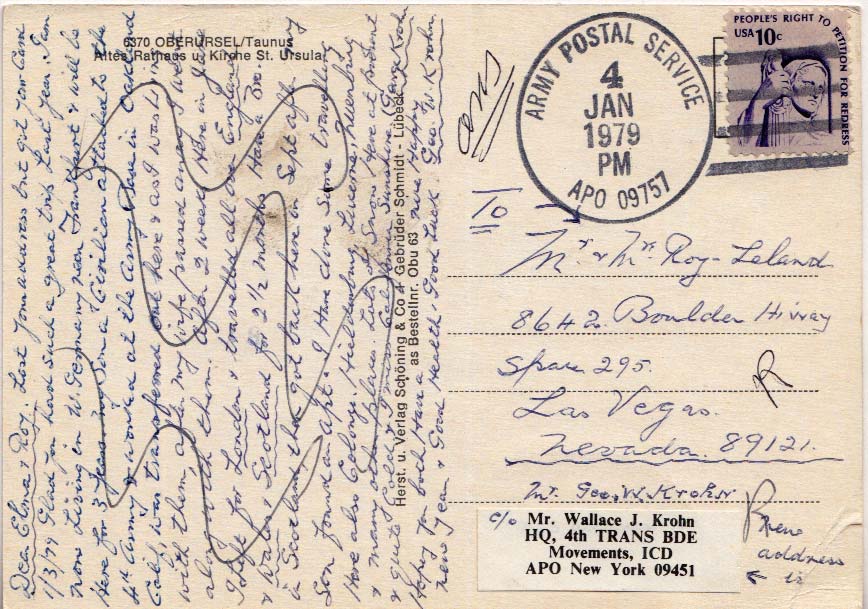 6370 OBERURSEL/Taunus
Altes Rathaus u. Kirche St. Ursula
Dear Elma & Roy. Lost your address but got your Card
1/3/79 Glad you had such a great trip Last year. I am
now Living in W. Germany near Frankfurt & will be
Here for 3 years my Son a Civilian attached to the
4th Army & worked at the Army Base in Oakland
Calif was transferred out here & as I was Living
with them, after my wife passed away I went
along with them. after 2 weeks Here in June
I left for London & travelled all over England
& Wales & Scotland for 2 1/2 months Have a Bro
in Scotland then got back here in Sept after my
Son found an apt. & I Have done some travelling
Have also Cologne. Heidelburg, Lucerne, Nuernburg
& many other places. Lots of Snow Here at present
& quite Cold & I miss California Sunshine,
Hoping you both Have a nice Happy
new year & Good Health & Good Luck. Geo. W. Krohn
Herst. u. Verlag Schöning & Co + Gebrüder Schmidt - Lübeck
as Bestellnr. Obu 63
ans
ARMY POSTAL SERVICE
4
JAN
1979
PM
APO 09757
PEOPLE'S RIGHT TO PETITION FOR REDRESS
USA 10c
To
Mr & Mrs Roy Leland
8642 Boulder Hiway
Space 295.
R
Las Vegas.
Nevada. 89121.
Mr. Geo. W. Krohn
c/o Mr. Wallace J. Krohn
HQ, 4th TRANS BDE
Movements, ICD
APO New York 09451
new
address
is